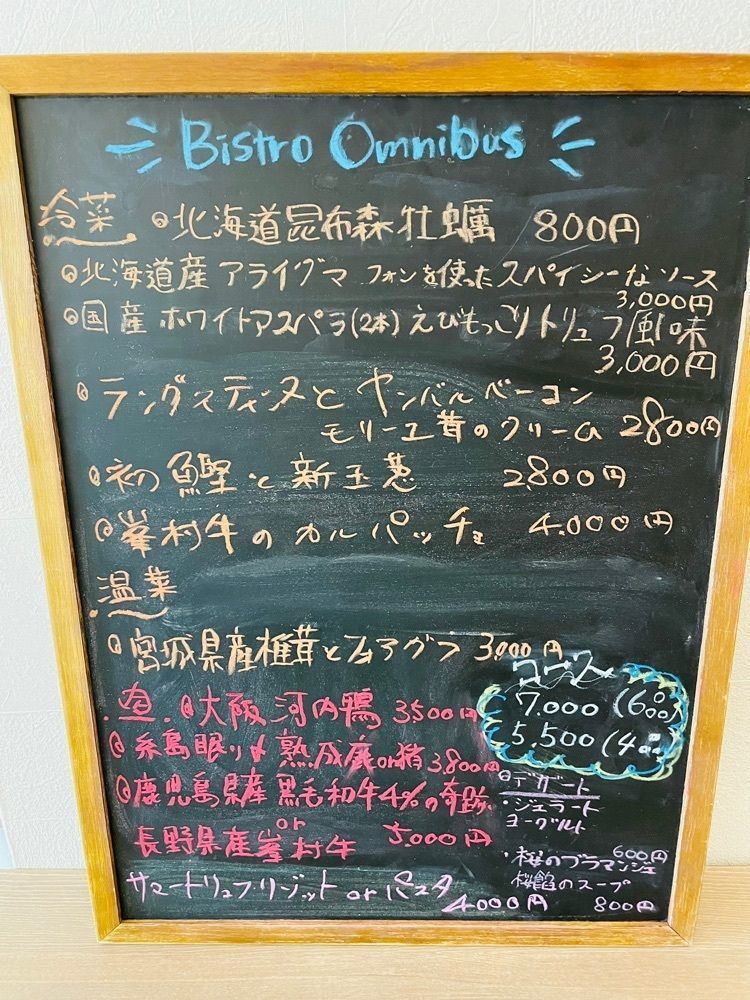 Bistro Omnibus
冷菜 北海道昆布森牡蠣 800円
北海道産アライグマ フォンを使ったスパイシーなソース
3,000円
国産ホワイトアスパラ(2本)えびもっこりトリュフ風味
3,000円
ラングスティーヌとヤンバルベーコン
モリーユ茸のクリーム 2800円
初鰹と新玉葱 2,800円
峯村牛のカルパッチョ 4,000円
温菜
宮城県産椎茸とフォアグラ 3,000円
コース
7,000
5,500
大阪河内鴨 3500円
糸島眠り〆熟成鹿or猪 3,800円
鹿児島県産黒毛和牛4%の奇跡
or
長野県産峯村牛 5,000円
サマートリュフリゾットorパスタ
4000円
デザート
・ジェラート
ヨーグルト
600円
・桜のブラマンジェ
桜餡のスープ
800円